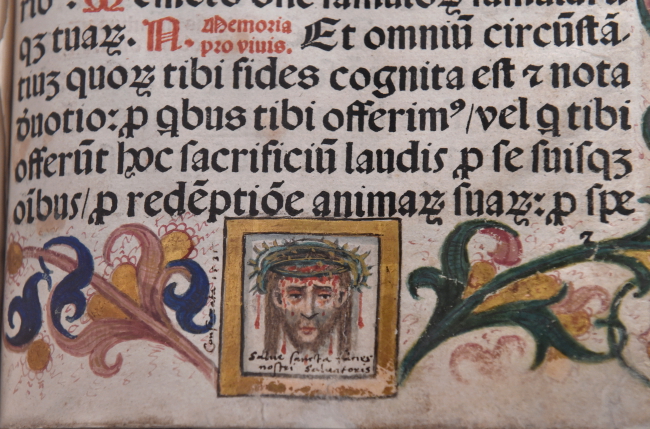 famulorum famularū
qꝫ tuaꝝ. N. Memoria
pro viuis. Et omniū circūſtā-
tiuꝫ quoꝝ tibi fides cognita eſt ⁊ nota
deuotio: ꝓ qbus tibi offerimꝰ/vel q tibi
offerūt hoc ſacrificiū laudis ꝓ ſe ſuiſqꝫ
oībus/ꝓ redēptiōe animaꝝ ſuaꝝ: ꝓ ſpe
Salue ſancta facies
noſtri Saluatoris